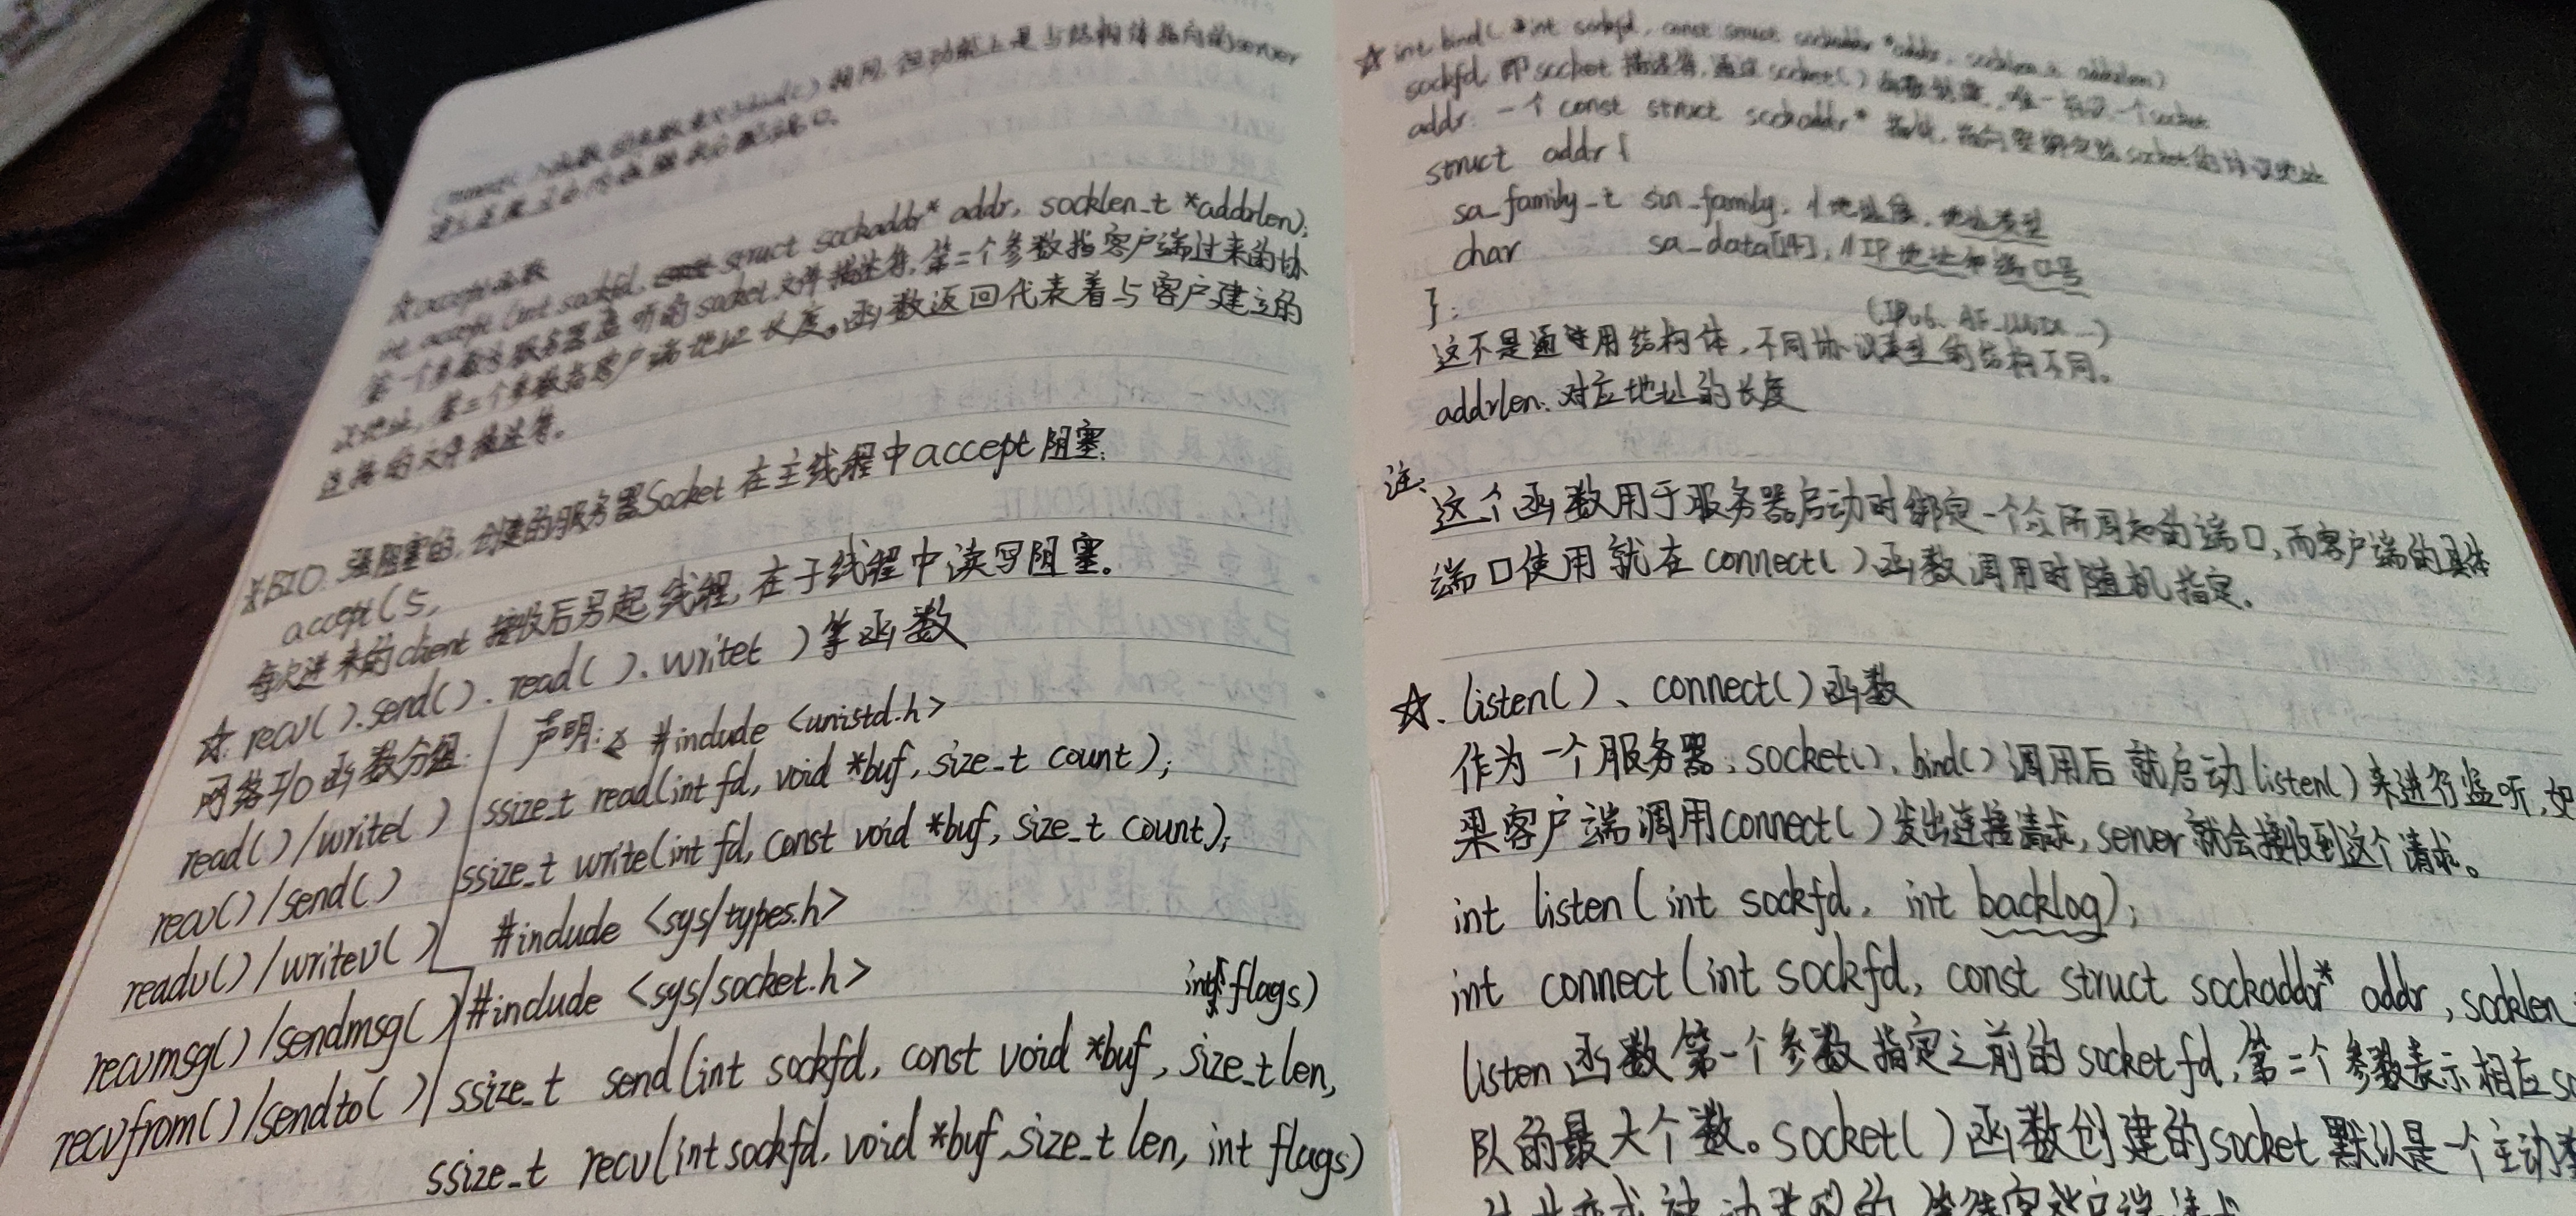 connect()函数的参数意义与bind()相同,但功能上是与结构体指向的server
建立连接
☆accept函数
int accept (int sockfd, struct sockaddr* addr, socklen_t *addrlen);
第一个参数为服务器监听的socket文件描述符,第二个参数指客户端过来的协
议地址,第三个参数指客户端地址长度。函数返回代表着与客户建立的
连接的文件描述符。
※BIO: 强阻塞的,创建的服务器Socket在主线程中accept阻塞.
accept(5,
每次进来的client接收后另起线程,在子线程中读写阻塞.
☆: recv().send().read().write( )等函数
网络I/O函数分组:
read()/write( )
recv()/send()
readv()/writev( )
recvmsg()/sendmsg( )
recvfrom()/sendto( )
声明: #include <unistd.h>
ssize_t read(int fd, void *buf, size_t count);
ssize_t write(int fd, const void *buf, size_t count);
#include <sys/types.h>
#include <sys/socket.h>
int flags)
ssize_t send(int sockfd, const void *buf, size_t len,
ssize_t recv(int sockfd, void *buf, size_t len, int flags)
☆ int bind( int sockfd, const struct sockaddr *addr, socklen_t addrlen)
sockfd: 即socket描述符,通过socket()函数创建,唯一标识一个socket
addr: 一个 const struct sockaddr* 指针,指向要绑定给socket的协议地址
struct addr{
sa_family_t sin_family, //地址族,地址类型
char sa_data[14], //IP地址和端口号
};
(IPv6、AF_UNIX...)
这不是通用结构体,不同协议类型的结构不同。
addrlen: 对应地址的长度
注:
这个函数用于服务器启动时绑定一个众所周知的端口,而客户端的具体
端口使用就在connect( )函数调用时随机指定.
☆. listen( )、connect( )函数
作为一个服务器,socket(),bind()调用后就启动listen()来进行监听,如
果客户端调用connect( )发出连接请求,server就会接收到这个请求。
int listen(int sockfd, int backlog);
int connect(int sockfd, const struct sockaddr* addr, socklen
listen函数第一个参数指定之前的socket fd,第二个参数表示相应so
队的最大个数。socket( )函数创建的socket默认是一个主动